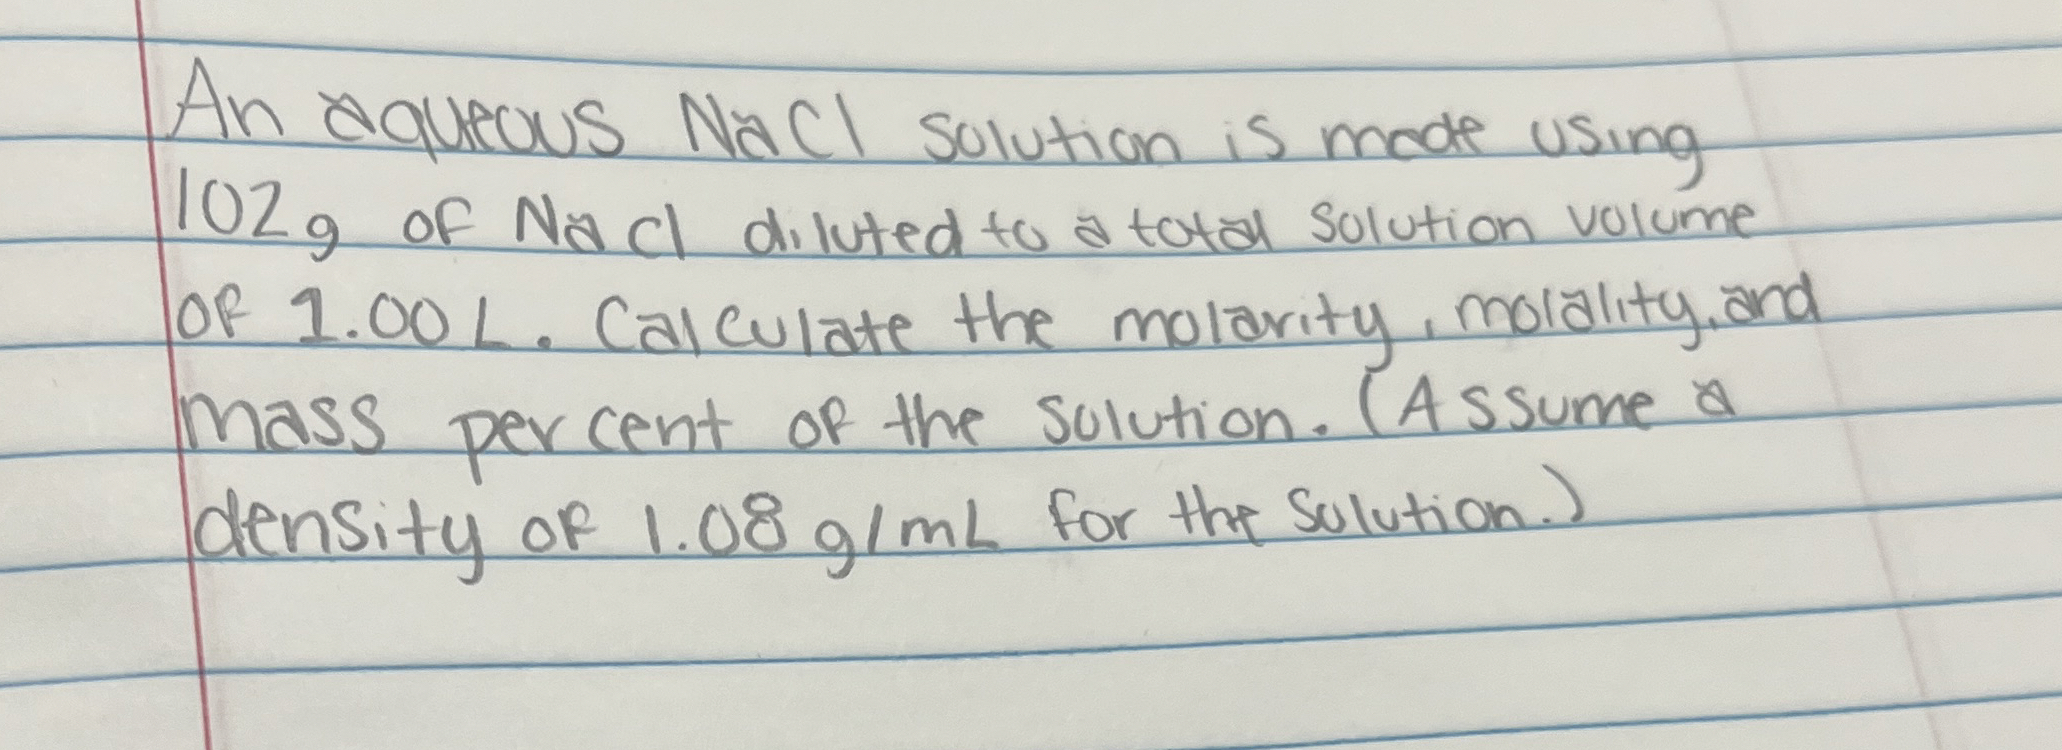 An aqueous NaCl solution is made using
102g of NaCl diluted to a total solution volume
of 1.00 L. Calculate the molarity, molality, and
mass percent of the solution. (Assume a
density of 1.08 g/mL for the solution.)